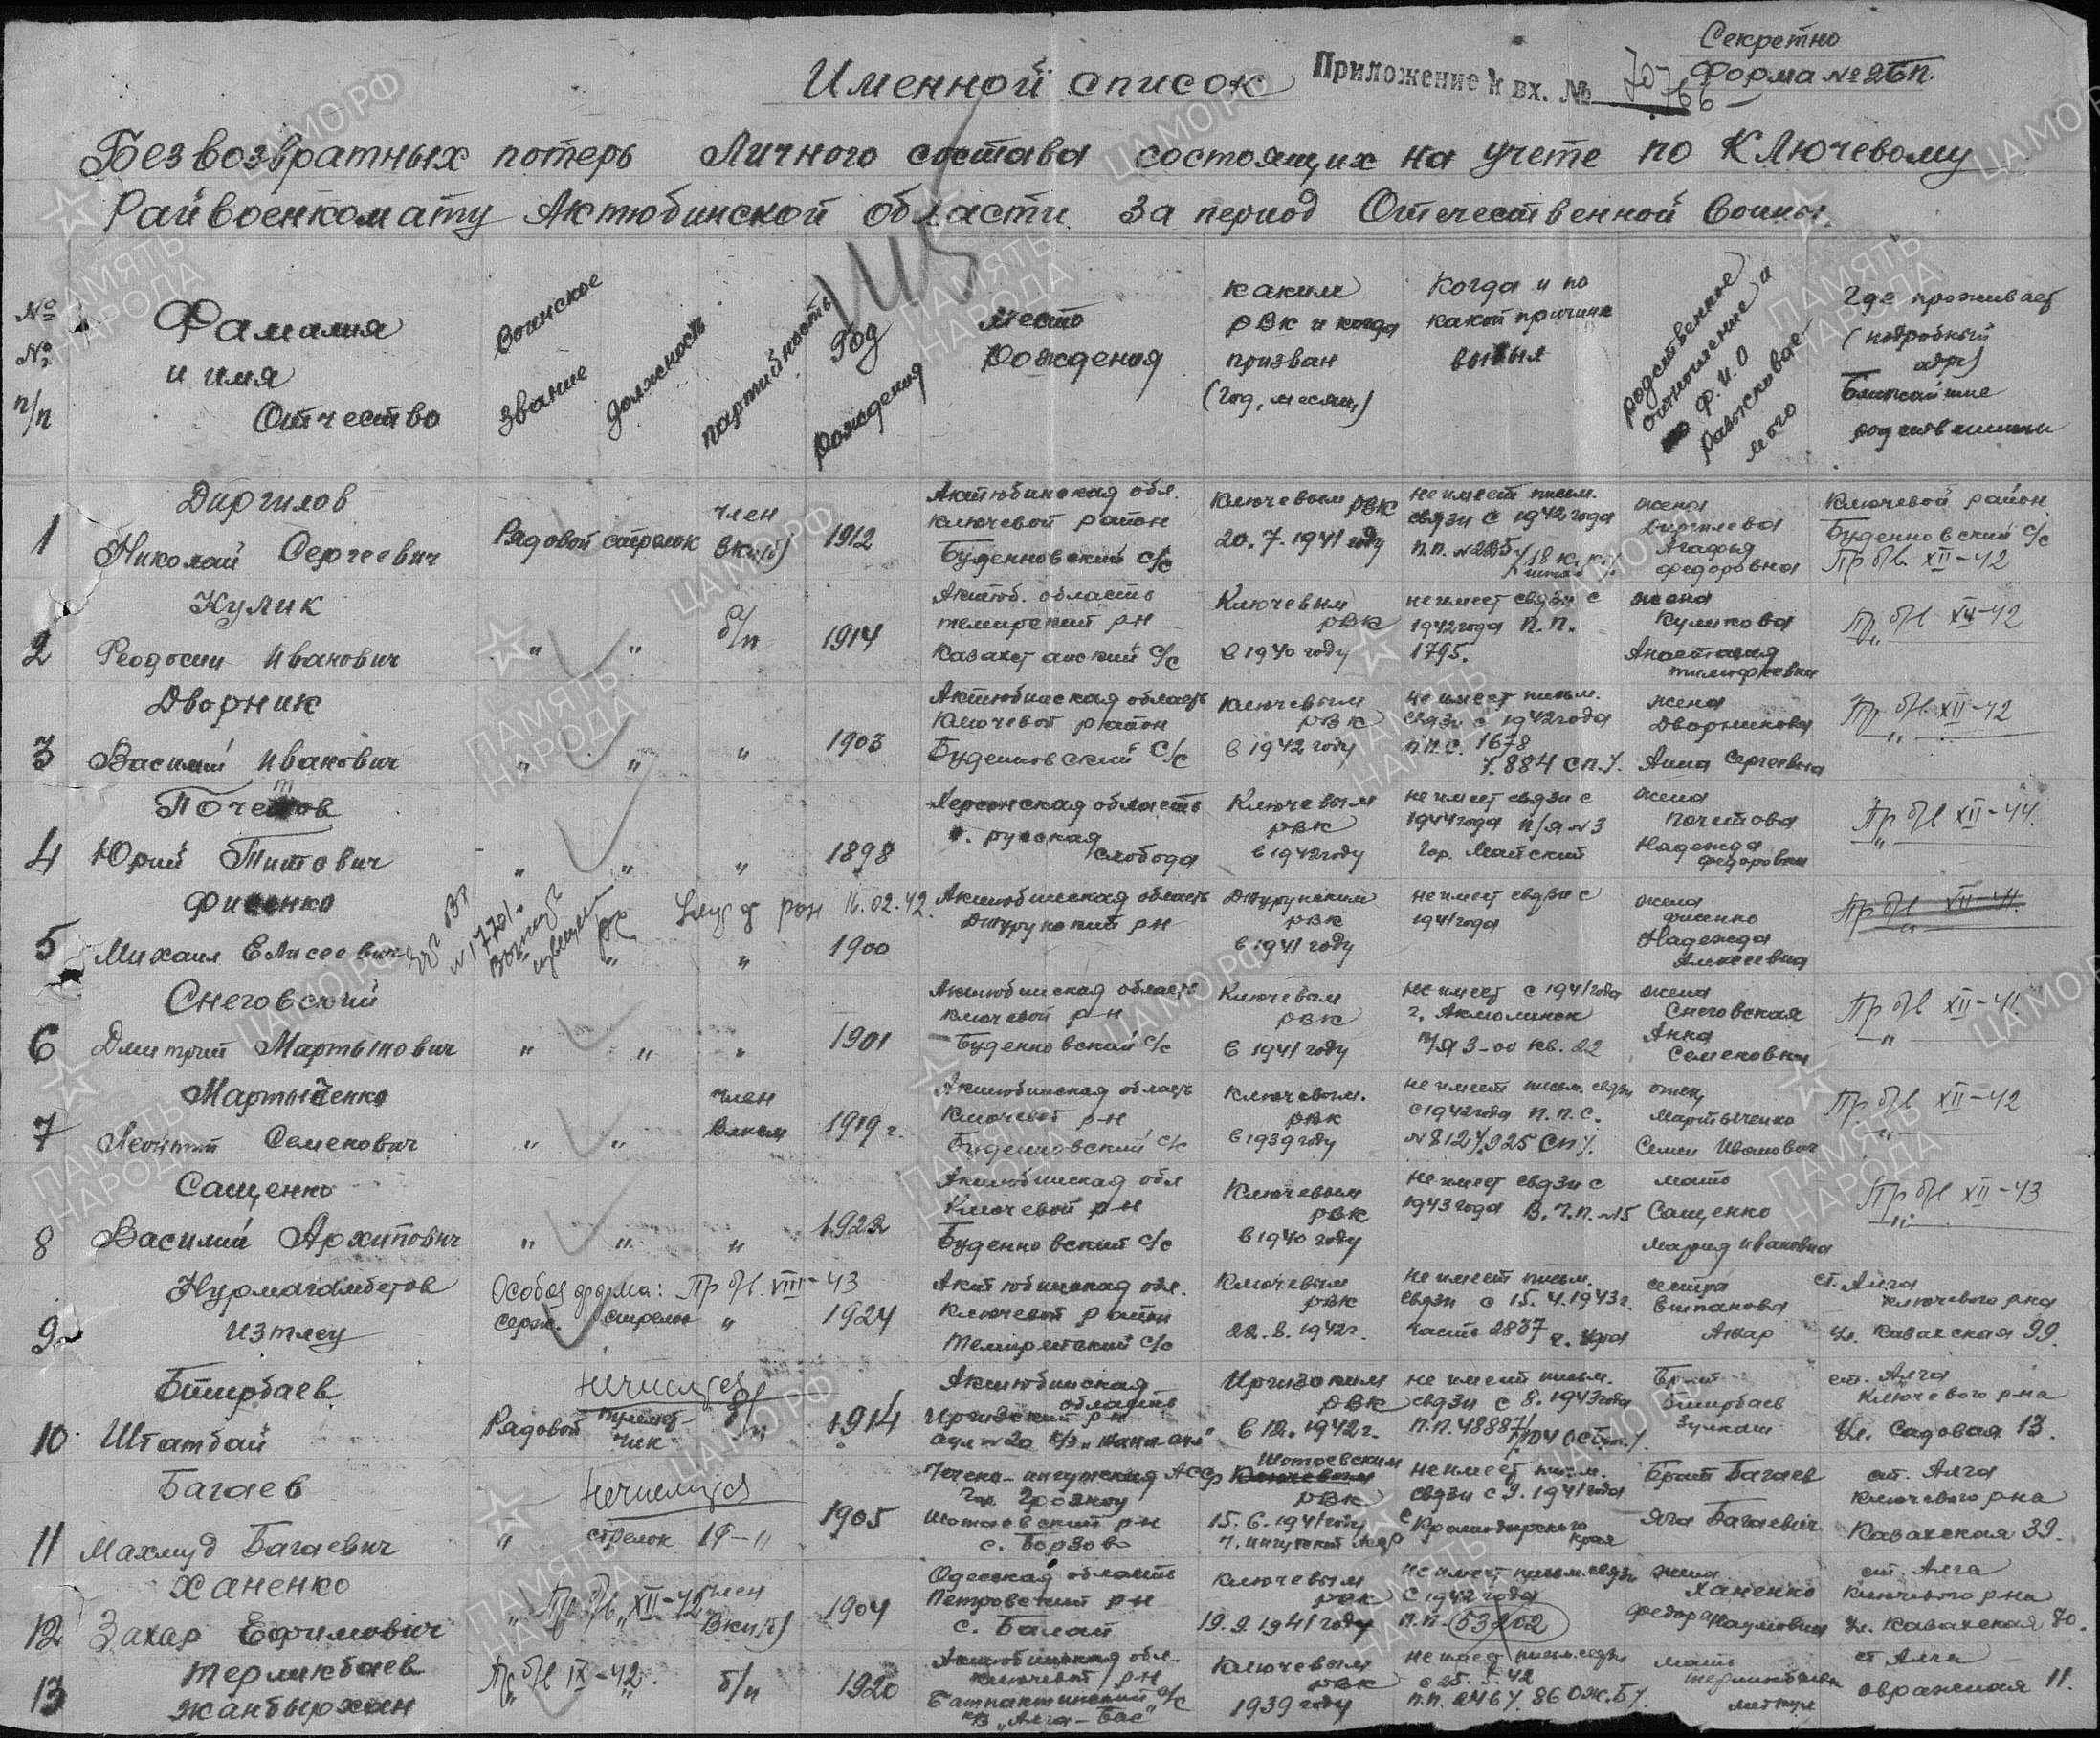 Секретно
Форма № 2БП.
Именной список
Приложение к вх. № 70766
Безвозвратных потерь Личного состава состоящих на учете по Ключевому
Райвоенкомату Актюбинской области за период Отечественной войны.
№ № п/п
Фамилия и имя Отчество
Воинское звание
Должность
партийность
Год рождения
Место рождения
каким РВК и когда призван (год, месяц)
Когда и по какой причине выбыл
родственное отношение и Ф.И.О
Где проживает (подробный адр)
Ближайшие
1
Диргилов
Николай Сергеевич
Рядовой стрелок
член ВКП(б)
1912
Актюбинская обл.
Ключевой район
Буденновский с/с
Ключевым РВК
20.7.1941 году
не имеет письм.
связи с 1942 года
п.п. № 225
жена
Агафья
Федоровна
Ключевой район
Буденновский с/с
Пр б/в XII-42
2
Кулик
Феодосий Иванович
" "
б/п
1914
Актюб. область
темирский р-н
Казахстанский с/с
Ключевым РВК
в 1940 году
не имеет связи с
1942 года п.п.
1795.
жена
Куликова
Анастасия
Тимофеевна
Пр б/в XII-42
"
3
Дворник
Василий Иванович
" " "
1903
Актюбинская область
Ключевой район
Буденновский с/с
Ключевым РВК
в 1942 году
не имеет письм.
связи с 1942 года
п.п.с. 1678
/.884 сп./.
жена
Дворникова
Анна Сергеевна
Пр б/в XII-42
"
4
Почетов
Юрий Титович
" " "
1898
Херсонская область
с. русская слобода
Ключевым РВК
в 1942 году
не имеет связи с
1944 года п/я №3
гор. Майский
жена
Почетова
Надежда
Федоровна
Пр б/в XII-44.
"
5
Фисенко
Михаил Елисеевич
№17701.
16.02.42.
" "
1900
Актюбинская область
Джурунский рн
Джурунским РВК
в 1941 году
не имеет связи с
1941 года
жена
Фисенко
Надежда
Алексеевна
Пр б/в XII-41.
"
6
Снеговский
Дмитрий Мартынович
" " "
1901
Актюбинская область
Ключевой р-н
Буденновский с/с
Ключевым РВК
в 1941 году
не имеет с 1941 года
г. Акмолинск
п/я 3-00 кв. 22
жена
Снеговская
Анна
Семеновна
Пр б/в XII-41.
"
7
Мартыченко
Леонтий Семенович
" "
член
Влксм
1919 г.
Актюбинская область
Ключевой р-н
Буденновский с/с
Ключевым. РВК
в 1939 году
не имеет письм. связи
с 1942 года п.п.с.
№ 812 /.925 сп/.
отец
Мартыченко
Семен Иванович
Пр б/в XII-42
"
8
Сащенко
Василий Архипович
" " "
1922
Актюбинская обл
Ключевой р-н
Буденновский с/с
Ключевым РВК
в 1940 году
не имеет связи с
1943 года В.ч.п. №15
мать
Сащенко
Мария Ивановна
Пр б/в XII-43
"
9
Нурмагамбетов
Изтлеу
Особая форма: Пр б/в. VIII-43
серж. стрелок "
1924
Актюбинская обл.
Ключевой район
Ключевым РВК
22.8.1942г.
не имеет письм.
связи с 15.4.1943г.
часть 2837
сестра
ст. Алга
Ключевого рна
Ул. Казахская 99.
10
Бтирбаев
Штамбай
Нечислится
Рядовой пулемет-
чик
б/п
1914
Актюбинская
область
Иргизский рн
аул №20 к/з "Жана-аул"
Иргизским РВК
в 12.1942г.
не имеет письм.
связи с 8.1943 года
п.п.48887
Брат
Бтирбаев
ст. Алга
Ключевого р-на
Ул. Садовая 13.
11
Багаев
Махмуд Багаевич
Нечислится
" стрелок
1905
Чечено-ингушская АССР
гор. Грозный
Шатоевский рн
с. Борзов
Шатоевским
РВК
15.6.1941 году
не имеет письм.
связи с 9.1941 года
с Краснодарского
края
Брат Багаев
Яга Багаевич
ст. Алга
Ключевого рна
Казахская 39.
12
Ханенко
Захар Ефимович
" Пр б/в XII-42 "
член
Вкп(б)
1904
Одесская область
Петровский рн
с. Балай
Ключевым РВК
19.9.1941 году
не имеет письм. связи
с 1942 года
п.п. 53202
жена
Ханенко
Федора Наумовна
ст. Алга
Ключевого рна
Ул. Казахская 70.
13
Терликбаев
Жанбырхан
Пр б/в IX-42.
" "
б/п
1920
Актюбинская обл.
Ключевой рн
"Алга-Бас"
Ключевым РВК
1939 году
не имеет письм. связи
с 25.5.42
п.п. 246
мать
ст Алга
овражная 11.
ПАМЯТЬ НАРОДА
ЦАМО РФ